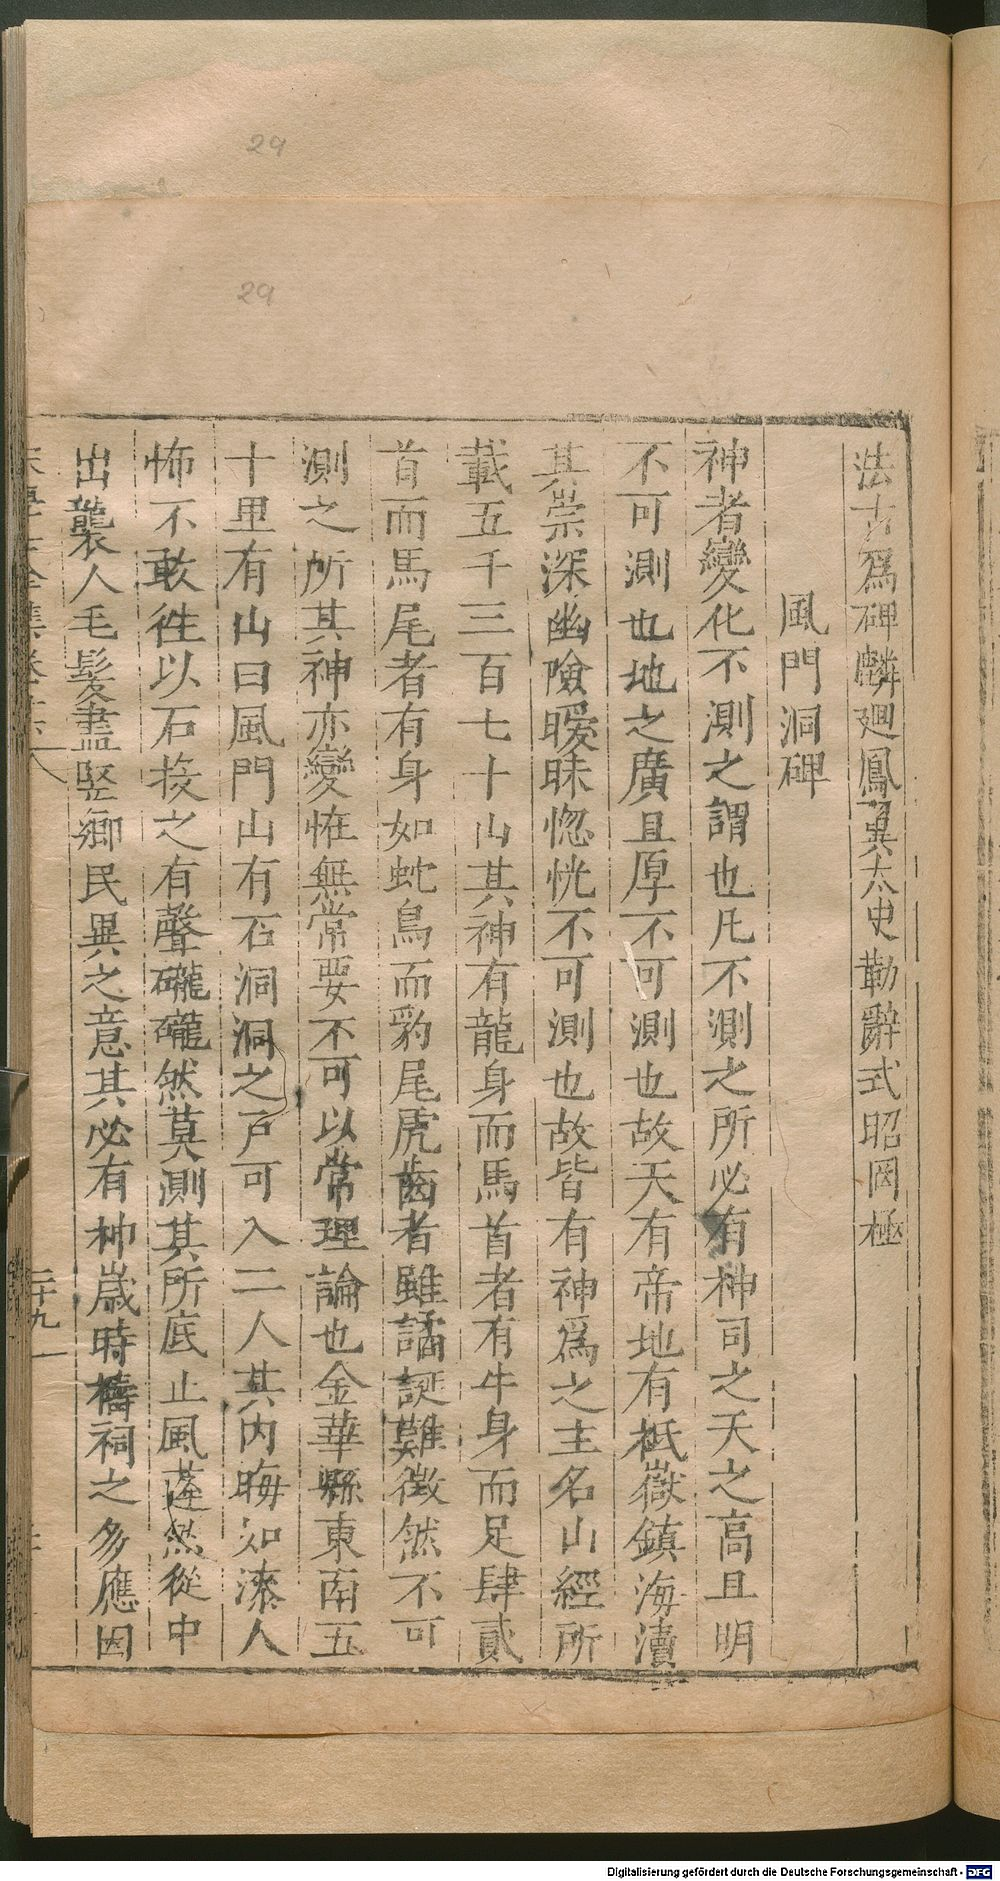 29
29
法古爲碑麟廻鳳翼太史勒辭式昭罔極
風門洞碑
神者變化不測之謂也凡不測之所必有神司之天之高且明
不可測也地之廣且厚不可測也故天有帝地有祇嶽鎮海瀆
其崇深幽險曖昧惚恍不可測也故皆有神爲之主名山經所
載五千三百七十山其神有龍身而馬首者有牛身而足肆貳
首而馬尾者有身如虵鳥而豹尾虎齒者雖譎誕難徵然不可
測之所其神亦變恠無常要不可以常理論也金華縣東南五
十里有山曰風門山有石洞洞之戸可入二人其内晦如漆人
怖不敢徃以石投之有聲礲礲然莫測其所底止風蓬然從中
出襲人毛髮盡竪鄉民異之意其必有神歳時禱祠之多應因
二十九
Digitalisierung gefördert durch die Deutsche Forschungsgemeinschaft - DFG